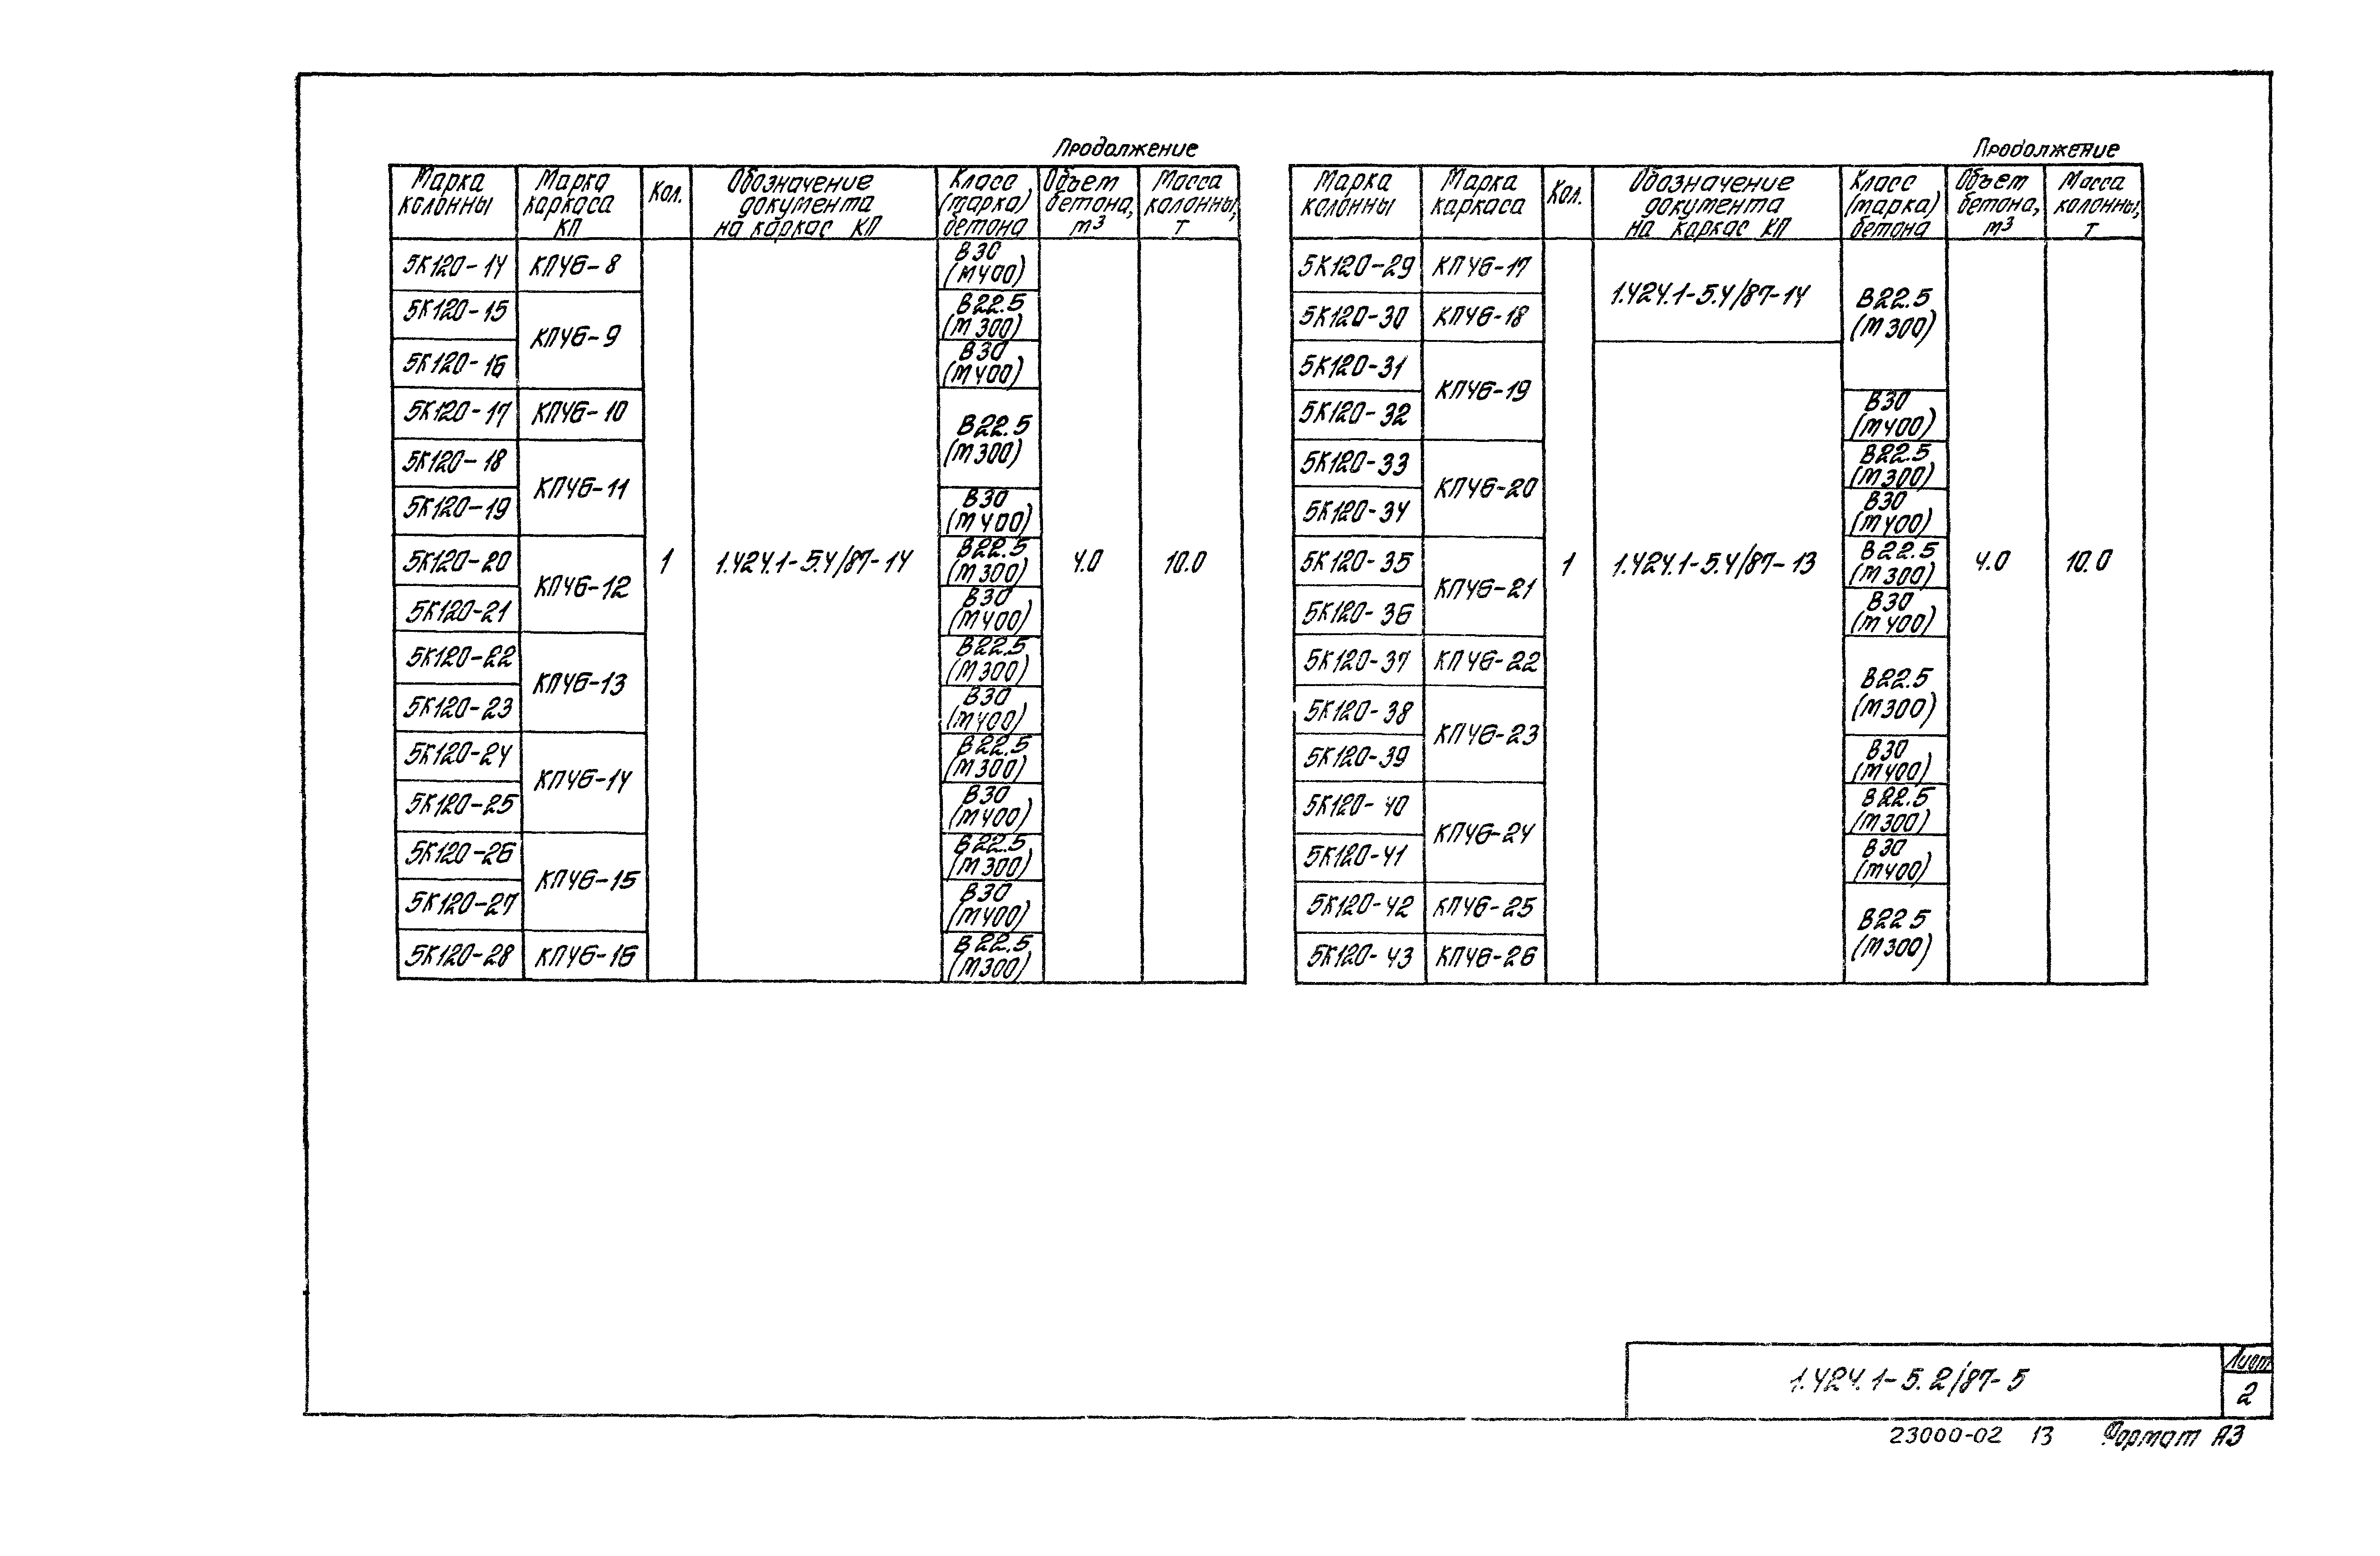 Продолжение
Марка колонны | Марка каркаса КП | Кол. | Обозначение документа на каркас КП | Класс (марка) бетона | Объем бетона, м3 | Масса колонны, т
5К120-14 | КП46-8 | 1 | 1.424.1-5.4/87-14 | В30 (М400) | 4.0 | 10.0
5К120-15 | КП46-9 | В22.5 (М300)
5К120-16 | В30 (М400)
5К120-17 | КП46-10 | В22.5 (М300)
5К120-18 | КП46-11
5К120-19 | В30 (М400)
5К120-20 | КП46-12 | В22.5 (М300)
5К120-21 | В30 (М400)
5К120-22 | КП46-13 | В22.5 (М300)
5К120-23 | В30 (М400)
5К120-24 | КП46-14 | В22.5 (М300)
5К120-25 | В30 (М400)
5К120-26 | КП46-15 | В22.5 (М300)
5К120-27 | В30 (М400)
5К120-28 | КП46-16 | В22.5 (М300)
Продолжение
Марка колонны | Марка каркаса | Кол. | Обозначение документа на каркас КП | Класс (марка) бетона | Объем бетона, м3 | Масса колонны, т
5К120-29 | КП46-17 | 1 | 1.424.1-5.4/87-14 | В22.5 (М300) | 4.0 | 10.0
5К120-30 | КП46-18
5К120-31 | КП46-19 | 1.424.1-5.4/87-13
5К120-32 | В30 (М400)
5К120-33 | КП46-20 | В22.5 (М300)
5К120-34 | В30 (М400)
5К120-35 | КП46-21 | В22.5 (М300)
5К120-36 | В30 (М400)
5К120-37 | КП46-22 | В22.5 (М300)
5К120-38 | КП46-23
5К120-39 | В30 (М400)
5К120-40 | КП46-24 | В22.5 (М300)
5К120-41 | В30 (М400)
5К120-42 | КП46-25 | В22.5 (М300)
5К120-43 | КП46-26
1.424.1-5.2/87-5
Лист
2
23000-02 13 Формат А3